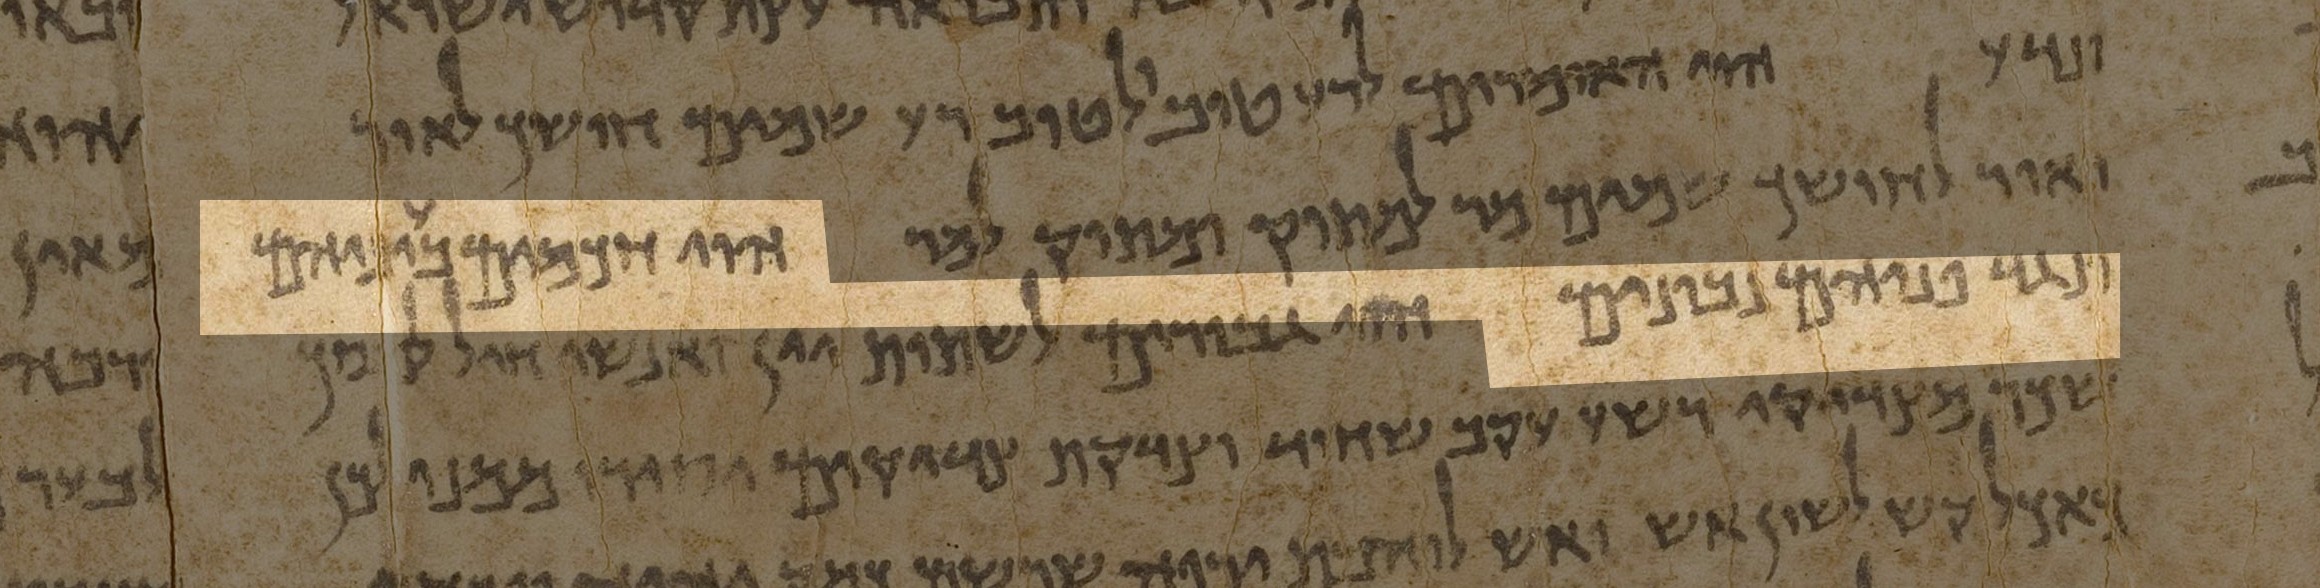 ותבואה עצת קדוש ישראל
ונדע הוי האומרים לרע טוב ולטוב רע שמים חושך לאור
ואור לחושך שמים מר למתוק ומתוק למר הוי חכמים בעיניהם
ונגד פניהם נבונים הוי גבורים לשתות יין ואנשי חיל למסך
שכר מצדיקי רשע עקב שחוד וצדקת צדיקים יסירו ממנו לכן
כאכל קש לשון אש ואש לוהבת ירפה שרשם